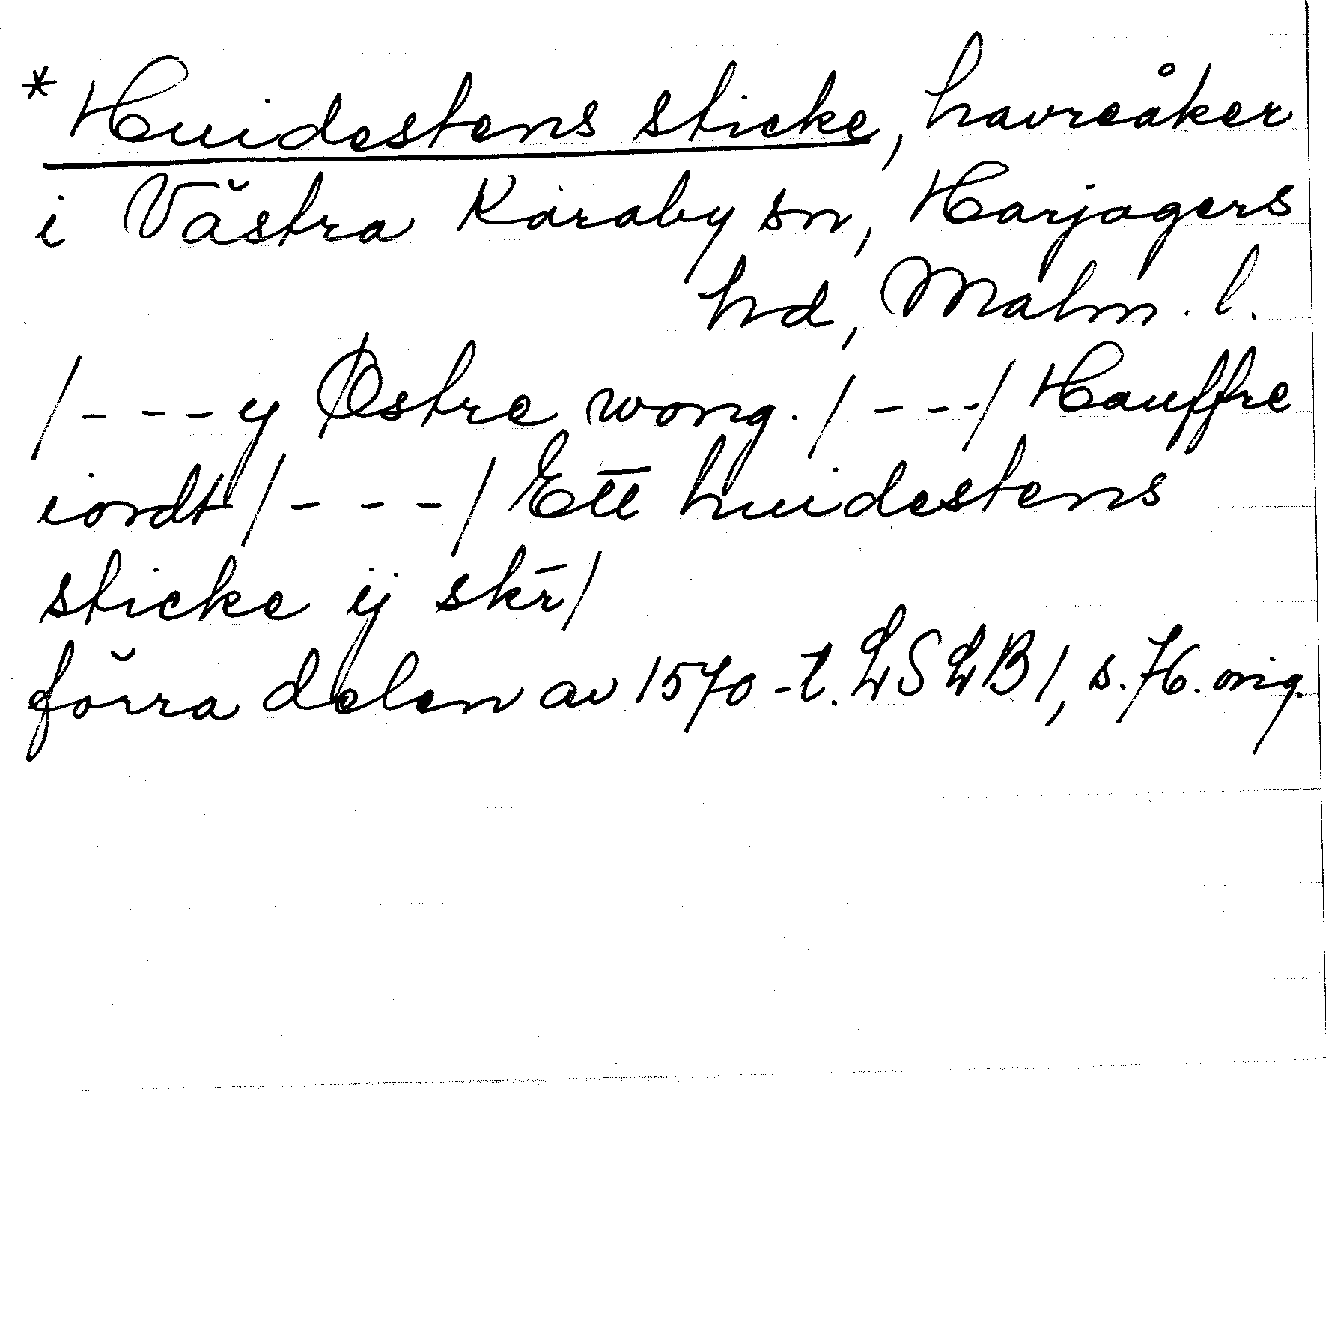 * Huidestens sticke, havreåker
i Västra Karaby sn, Harjagers
hd, Malm. l.
/- - - y Østre wong. / - - -/ Hauffre
iordt / - - - / Ett huidestens
sticke ij skr̄/
förra delen av 1570-t. LSLB 1, s. 76. orig.